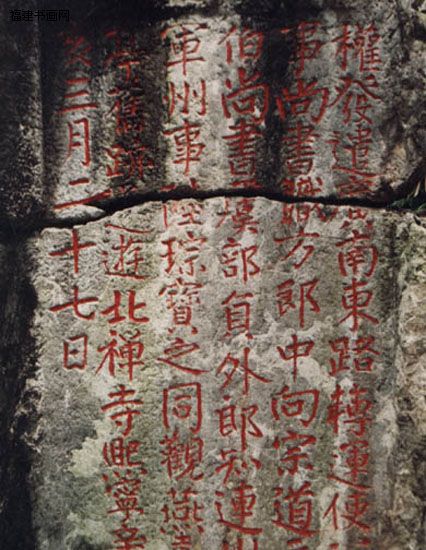 福建书画网
權發遣廣南東路轉運使
事尚書職方郎中向宗道
伯尚書虞部員外郎知連州
軍州事 陸琮寶之同觀燕
亭舊跡 遊北禪寺熙寧辛
亥三月二十七日